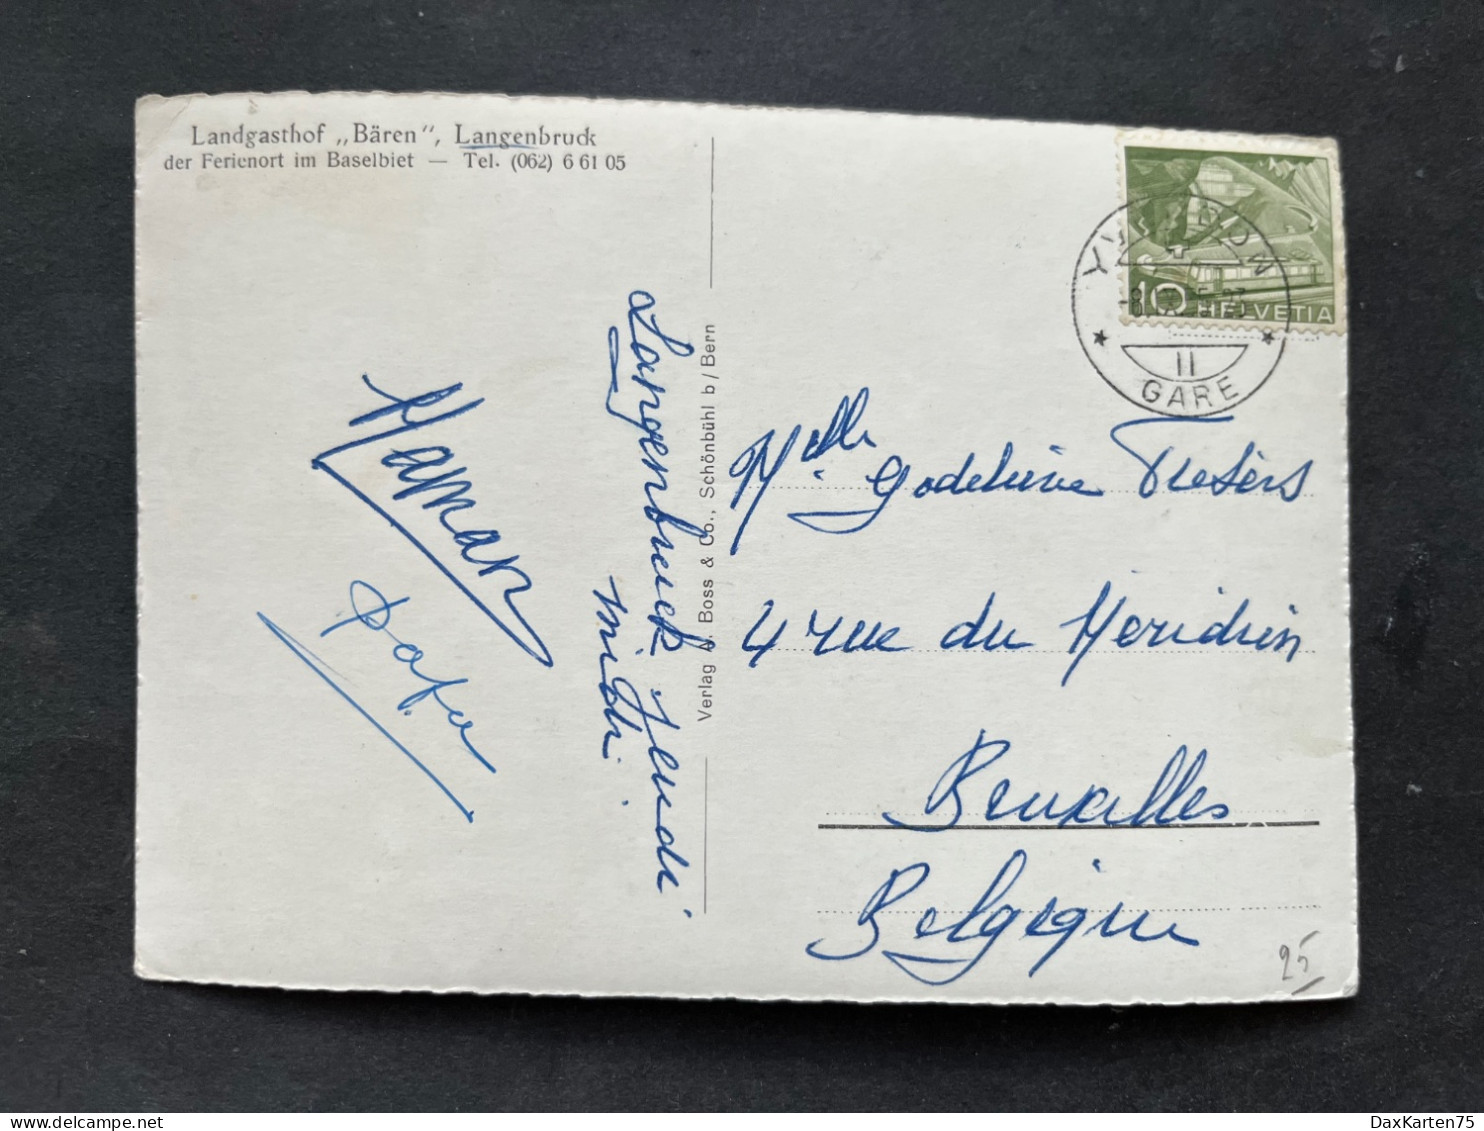 Landgasthof „Bären”, Langenbruck
der Ferienort im Baselbiet — Tel. (062) 6 61 05
Langenbruck jeudi
midi
Maman
Papa
Verlag A. Boss & Co., Schönbühl b/Bern
10 HELVETIA
II
GARE
Melle Godelieve
4 rue du Meridien
Bruxelles
Belgique
25
DaxKarten75